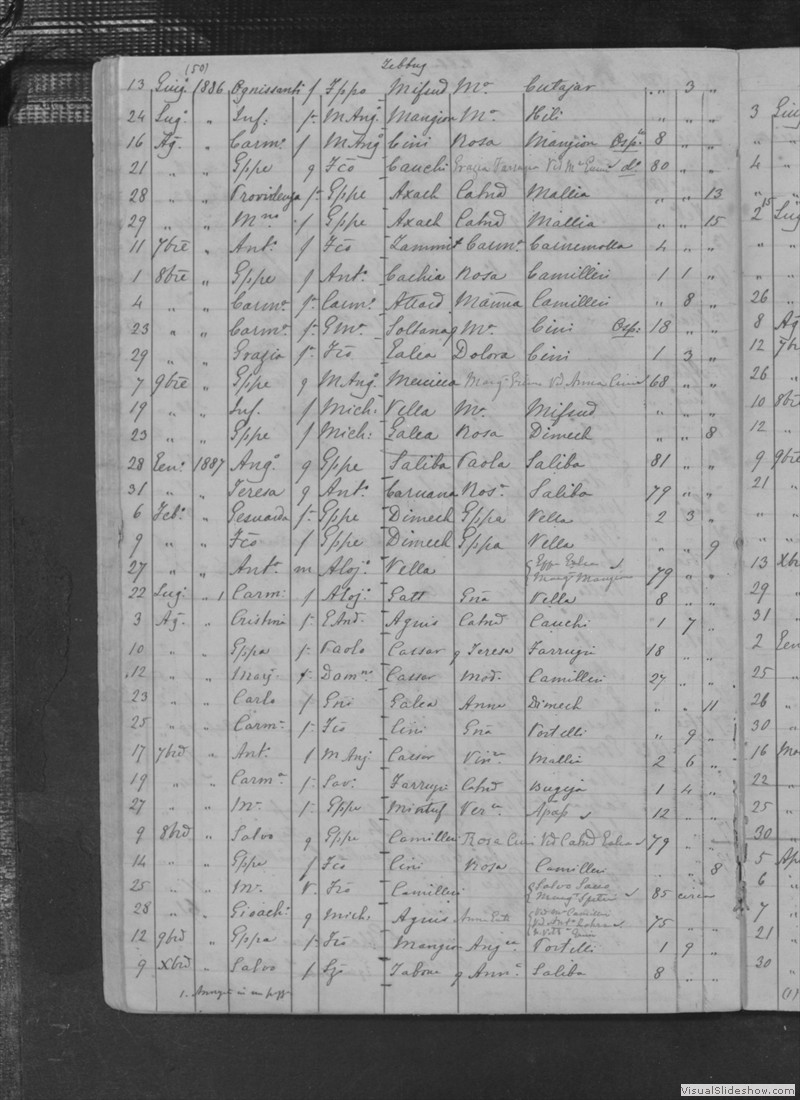 (50) Zebbug
13 Giug. 1886 Ognissanti f Gppe Mifsud Ma. Cutajar „ 3 „
24 Lug. „ Inf. f. M Ang. Mangion Ma. Hili
16 Ag. „ Carm. f M Ang. Cini Rosa Mangion Osp. 8 „ „
21 „ „ Gppe g Fco Cauchi Grazia Farrugia Vid Ma do. 80 „ „
28 „ „ Providenza f. Gppe Axach Catnd Mallia „ „ 13
29 „ „ f Gppe Axach Catnd Mallia „ „ 15
11 7bre „ Anto. f Fco Zammit Carm. Carnemolla 4 „ „
1 8bre „ Gppe f Anto. Cachia Rosa Camilleri 1 1 „
4 „ „ Carm. f. Carm. Attard Camilleri „ 8 „
23 „ „ Carm. f. Ma. Cini Osp: 18 „ „
29 „ „ Grazia f. Fco Galea Dolora Cini 1 3 „
7 9bre „ Gppe g M Ang. Mercieca Vd Anna 68 „ „
19 „ „ Inf. f Mich: Vella Ma. Mifsud „ „ „
23 „ „ Gppe f Mich: Galea Rosa Dimech „ „ 8
28 Gen. 1887 Ang. g Gppe Saliba Paola Saliba 81 „ „
31 „ „ Teresa g Anto. Caruana Rosa. Saliba 79 „ „
6 Feb. „ Gesuarda f. Gppe Dimech Gppa Vella 2 3 „
9 „ „ Fco f Gppe Dimech Gppa Vella „ „ 9
27 „ „ Anto. m Aloj. Vella Gppa Galea Marg. Mangion 79 „ „
22 Lug. „ 1 Carm: f Aloj. Gatt Gna Vella 8 „ „
3 Ag. „ Cristina f. Agius Catnd Cauchi 1 7 „
10 „ „ Gppa f. Paolo Cassar g Teresa Farrugia 18 „ „
12 „ „ Marj. f. Dam. Cassar Mod. Camilleri 27 „ „
23 „ „ Carlo f Gnio Galea Anna Dimech „ „ 11
25 „ „ Carm. f. Fco Cini Gna Portelli „ 9 „
17 7brd „ Anto. f M Anj. Cassar Vin. Mallia 2 6 „
19 „ „ Carm. f. Sav. Farrugia Catnd Bugeja 1 4 „
27 „ „ Ma. f. Gppe Mintuf Apap 12 „ „
9 8brd „ Salvo g Gppe Camilleri Rosa Cini Vd Catnd Galea 79 „ „
14 „ „ Gppa f Fco Cini Rosa Camilleri „ „ 8
25 „ „ Ma. V. Fco Camilleri Salvo Marg. Spiteri 85 circa
28 „ „ Gioach. g Mich. Agius Vd Ma Camilleri 75 „ „
12 9brd „ Gppa f. Fco Mangion Portelli 1 9 „
9 Xbrd „ Salvo f Tabone g Anna. Saliba 8 „ „
1.
3 Giug
4 „
2 15 Lug
„ „
„ „
26 „
8 Ag
12 7br
26 „
10 8br
12 „
9 9bre
21 „
„ „
„ „
13 Xbr
29 „
31 „
2 Gen
25 „
26 „
30 „
16 Ma
22 „
25 „
30 „
5 Ap
6 „
7 „
21 „
30 „
(1)
VisualSlideshow.com